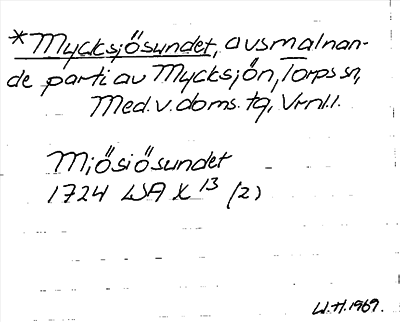 *Mycksjösundet, avsmalnan-
de parti av Mycksjön, Torps sn,
Med. v. doms. tg, Vrnl.
Miösiösundet
1724 LSA X 13 (2)
W.H. 1969.